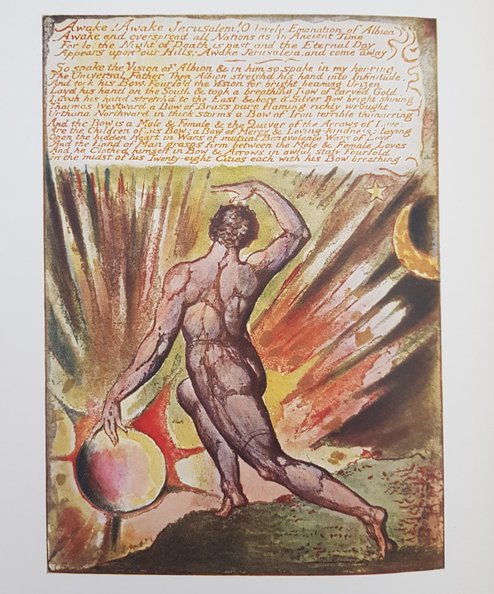 Awake! Awake Jerusalem! O lovely Emanation of Albion
Awake and overspread all Nations as in Ancient Time
For lo! the Night of Death is past and the Eternal Day
Appears upon our Hills: Awake Jerusalem, and come away
So spake the Vision of Albion & in him so spake in my hearing
The Universal Father Then Albion stretchd his hand into Infinitude.
And took his Bow. Fourfold the Vision for bright beaming Urizen
Layd his hand on the South & took a breathing Bow of carved Gold
Luvah his hand stretch'd to the East & bore a Silver Bow bright shining
Tharmas Westward a Bow of Brass pure flaming richly wrought
Urthona Northward in thick storms a Bow of Iron terrible thundering
And the Bow is a Male & Female & the Quiver of the Arrows of Love
Are the Children of his Bow: a Bow of Mercy & Loving-kindness: laying
Open the hidden Heart in Wars of mutual Benevolence Wars of Love
And the Hand of Man grasps firm between the Male & Female Loves
And he Clothed himself in Bow & Arrows in awful state Fourfold
In the midst of his Twenty-eight Cities each with his Bow breathing